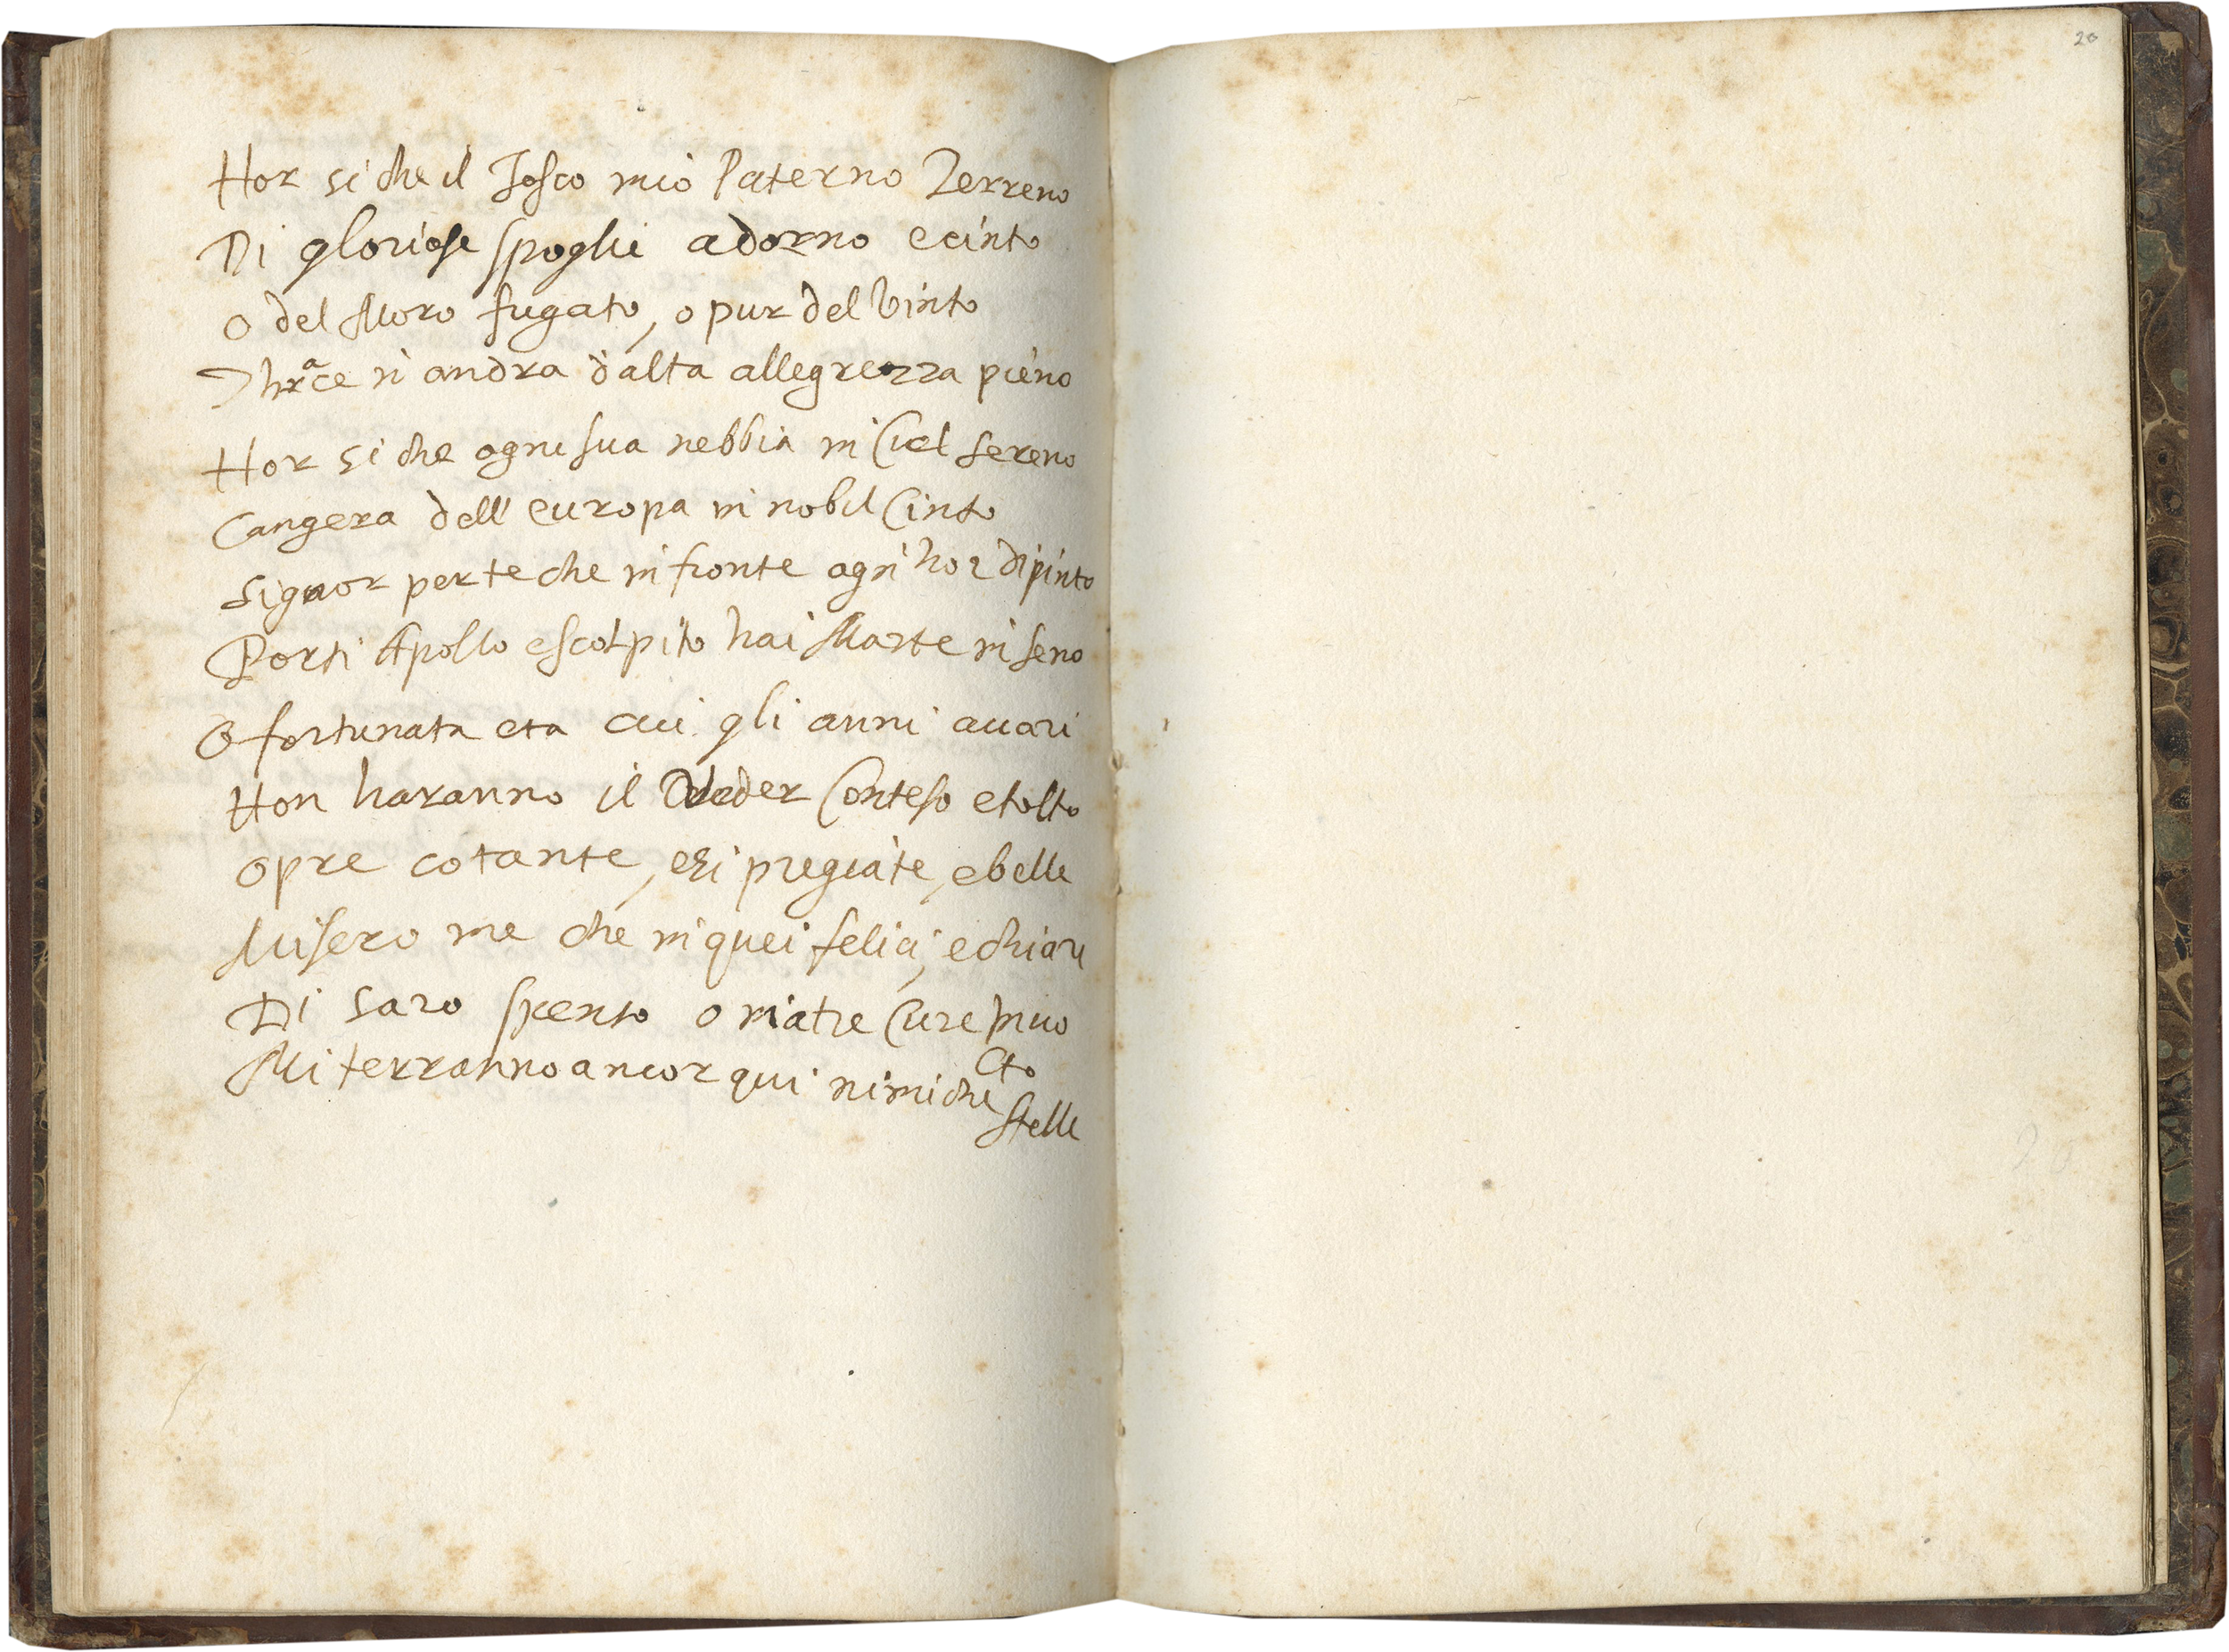 20
Hor si che il Tosco mio Paterno Terreno
Di gloriose spoglie adorno e cinto
O del Moro fugato, o pur del Vinto
Thrace n' andra d'alta allegrezza pieno
Hor si che ogni sua nebbia in Ciel sereno
Cangera dell' europa in nobil Cinto
Signor per te che in fronte ogn' hor dipinto
Porti Apollo e scolpito hai Marte in seno
O fortunata eta cui gli anni avari
Non haranno il Veder Conteso e tolto
Opre cotante, e si pregiate, e belle
Misero me che in quei felici, e chiari
Di saro spento o in atre Cure involto
Mi terranno ancor qui nimiche stelle